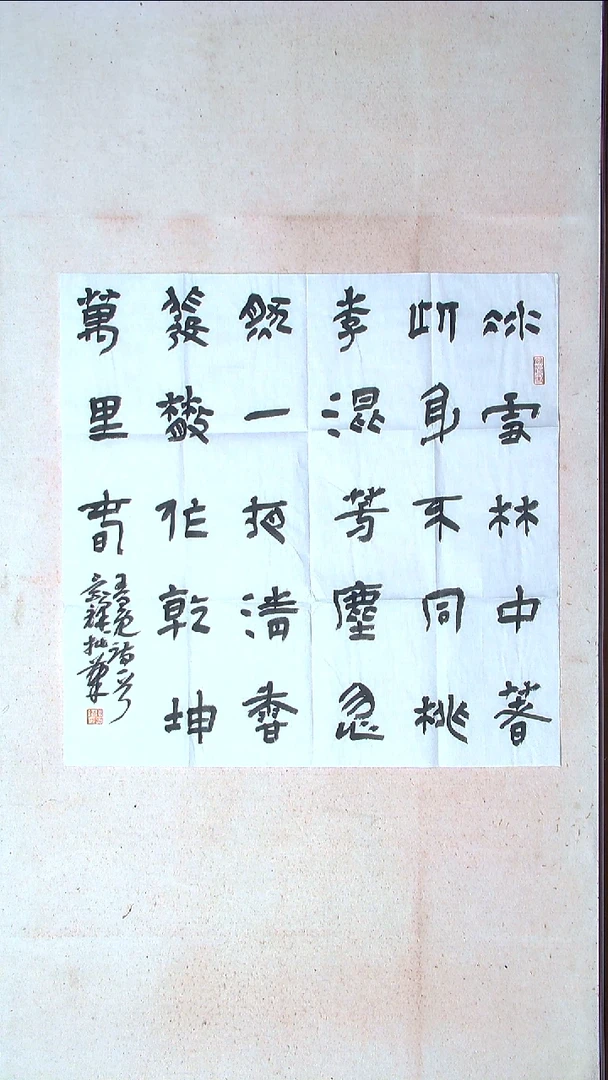 冰雪林中著
此身不同桃
李混芳塵忽
然一夜清香
發散作乾坤
萬里春
王冕詩一首
拙筆